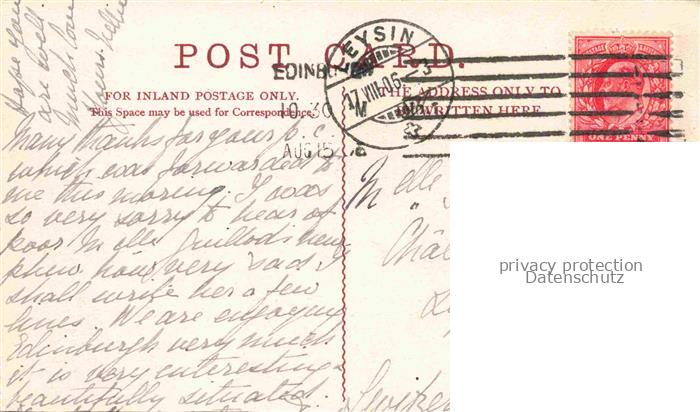 POST CARD.
FOR INLAND POSTAGE ONLY.
This Space may be used for Correspondence.
THE ADDRESS ONLY TO
BE WRITTEN HERE
EDINBURGH
10 30
AUG 15
LEYSIN
17.VIII.05
ONE PENNY
Hope you
are well
much love
Many thanks for your p.c.
which was forwarded to
me this morning. I was
so very sorry to hear of
poor Melle Guillod's new-
phew, how very sad. I
shall write her a few
lines. We are enjoying
Edinburgh very much
it is very interesting &
beautifully situated.
Melle
Chât
privacy protection
Datenschutz